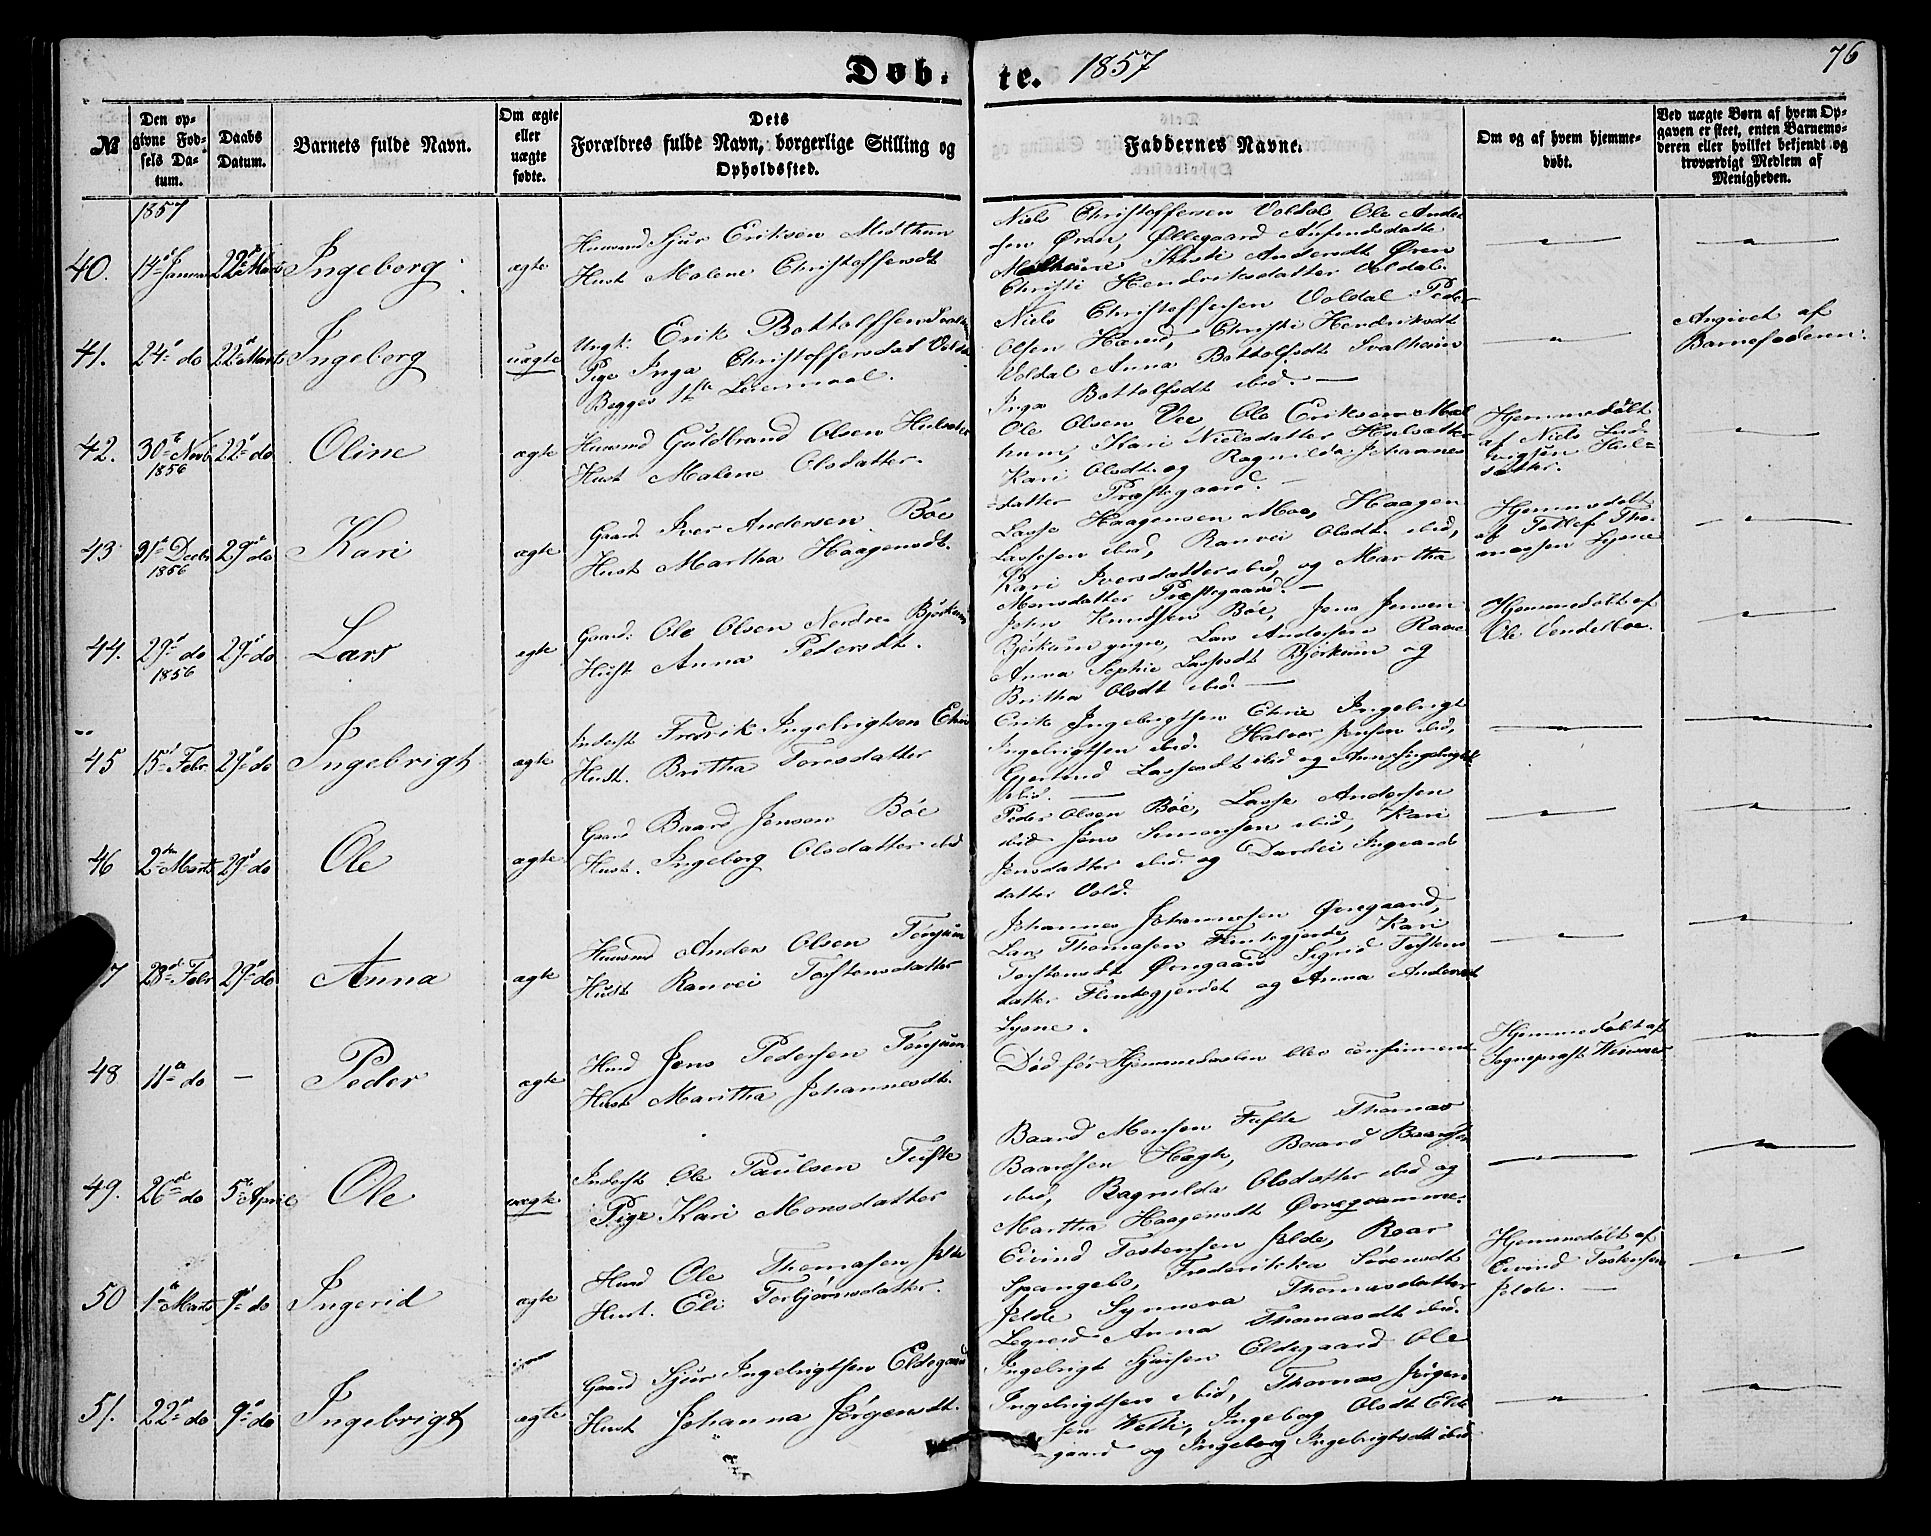 Døb-
te. 1857
76
№
Den op-
givne Fød-
sels Da-
tum.
Daabs
Datum.
Barnets fulde Navn.
Om ægte
eller
uægte
fødte.
Dets
Forældres fulde Navn, borgerlige Stilling og
Opholdssted.
Faddernes Navne.
Om og af hvem hjemme-
døbt.
Ved uægte Børn af hvem Op-
gaven er skeet, enten Barnemo-
deren eller hvilket bekjendt og
troværdigt Medlem af
Menigheden.
1857
40. 14de Januar 22de Marts Ingeborg ægte
Huusmd Sjur Eriksen Midthun
Hust Malene Christoffersdt
Niels Christoffersen Voldal, Ole Ander
sen Øren, Øllegaard Anfindsdatter
Kristi Andersdt Øren
Christi Hendriksdatter Voldal.
41. 24de do 22de Marts Ingeborg uægte
Ungk: Erik Bottolfsen
Pige Inga Christoffersdat Voldal
Begges 1ste Leiermaal.
Niels Christoffersen Voldal Peder
Olsen Christi Hendriksdt
Voldal Anna Bottolfsdt Svalheim
Inga Bottolfsdt ibid. —
Angivet af
Barnefaderen:
42. 30te Novb 1856 22de do Oline ægte
Huusmd Guldbrand Olsen
Hust Malene Olsdatter.
Ole Olsen Vee Ole Eriksen
Kari Nielsdatter
Kari Olsdt og Ragnilda Johannes
datter Præstegaard. —
Hjemmedøbt
af Niels Lud-
vigsen Hul-
sætter.
43 31te Decbr 1856 29de do Kari ægte
Gaard. Iver Andersen Bøe
Hust Martha Haagensdt.
Lasse Haagensen Moe, Haagen
Lassesen ibid, Ranvei Olsdt ibid,
Kari Iversdatter ibid, og Martha
Monsdatter Præstegaard. —
Hjemmedøbt
af Tollef Tho-
massen Lysne
44. 29de do 1856 29de do Lars ægte
Gaard: Ole Olsen Nedre Bjørkum
Hust Anna Pedersdt.
John Knudsen Bøe, Jens Jensen
Bjørkum yngre, Lars Andersen
Anna Sophie Lassesdt Bjørkum og
Britha Olsdt ibid. —
Hjemmedøbt af
Ole Vendelboe.
45 15de Febr 29de do Ingebrigt ægte
Inderst Fredrik Ingebrigtsen
Hust. Britha Tomsdatter
Erik Ingebrigtsen Ingebrigt
Ingebrigtsen ibid. Halvor Jensen ibid,
Gjertrud Lassesdt ibid og Anna Ingebrigtsdt
ibid. —
46 2den Marts 29de do Ole ægte
Gaard Baard Jensen Bøe
Hust. Ingeborg Olsdatter ibid
Peder Olsen Bøe, Lasse Andersen
ibid Jens Simonsen ibid, Kari
Jensdatter ibid og Durdei Ingvards
datter Vold.
7 28de Febr 29de do Anna ægte
Huusmd Anders Olsen Tønjum
Hust Ranvei Torstensdatter
Johannes Johannesen Øregaard,
Lars Thomasen Flintegjerdet Kari
Torstensdt Øregaard Sigrid Torstens
datter Flintegjerdet og Anna Andersdt
Lysne.
48 11te do — Peder ægte
Husmd Jens Pedersen Tønjum
Hust Maritha Johannesdt.
Død før Hjemmedaaben blev confirmeret
Hjemmedøbt af
Sognepræst
49. 26de do 5te April Ole uægte
Inderst Ole Paulsen Tufte
Pige Kari Monsdatter
Baard Monsen Tufte Thomas
Baardsen Hægh, Baard Baardsen
ibid, Ragnilda Olsdatter ibid og
Martha Haagensdt
50 1ste Marts 9de do Ingerid ægte
Husmd Ole Thomasen Jelde
Hust. Eli Torbjørnsdatter.
Eivind Tostensen Jelde, Roar
Spangelo, Frederikka Sørensdt
Jelde Synneva Thomasdatter
Anna Thomasdt ibid.
Hjemmedøbt af
Eivind Tostensen
Jelde. —
51. 22de do 9de do Ingebrigt ægte
Gaard Sjur Ingebrigtsen Eldegaard
Hust Johanna Jørgensdt.
Ingebrigt Sjursen Eldegaard Ole
Ingebrigtsen ibid, Thomas Jørgen
sen Vetti, Ingeborg Olsdt Elde
gaard og Ingeborg Ingebrigtsdt ibid